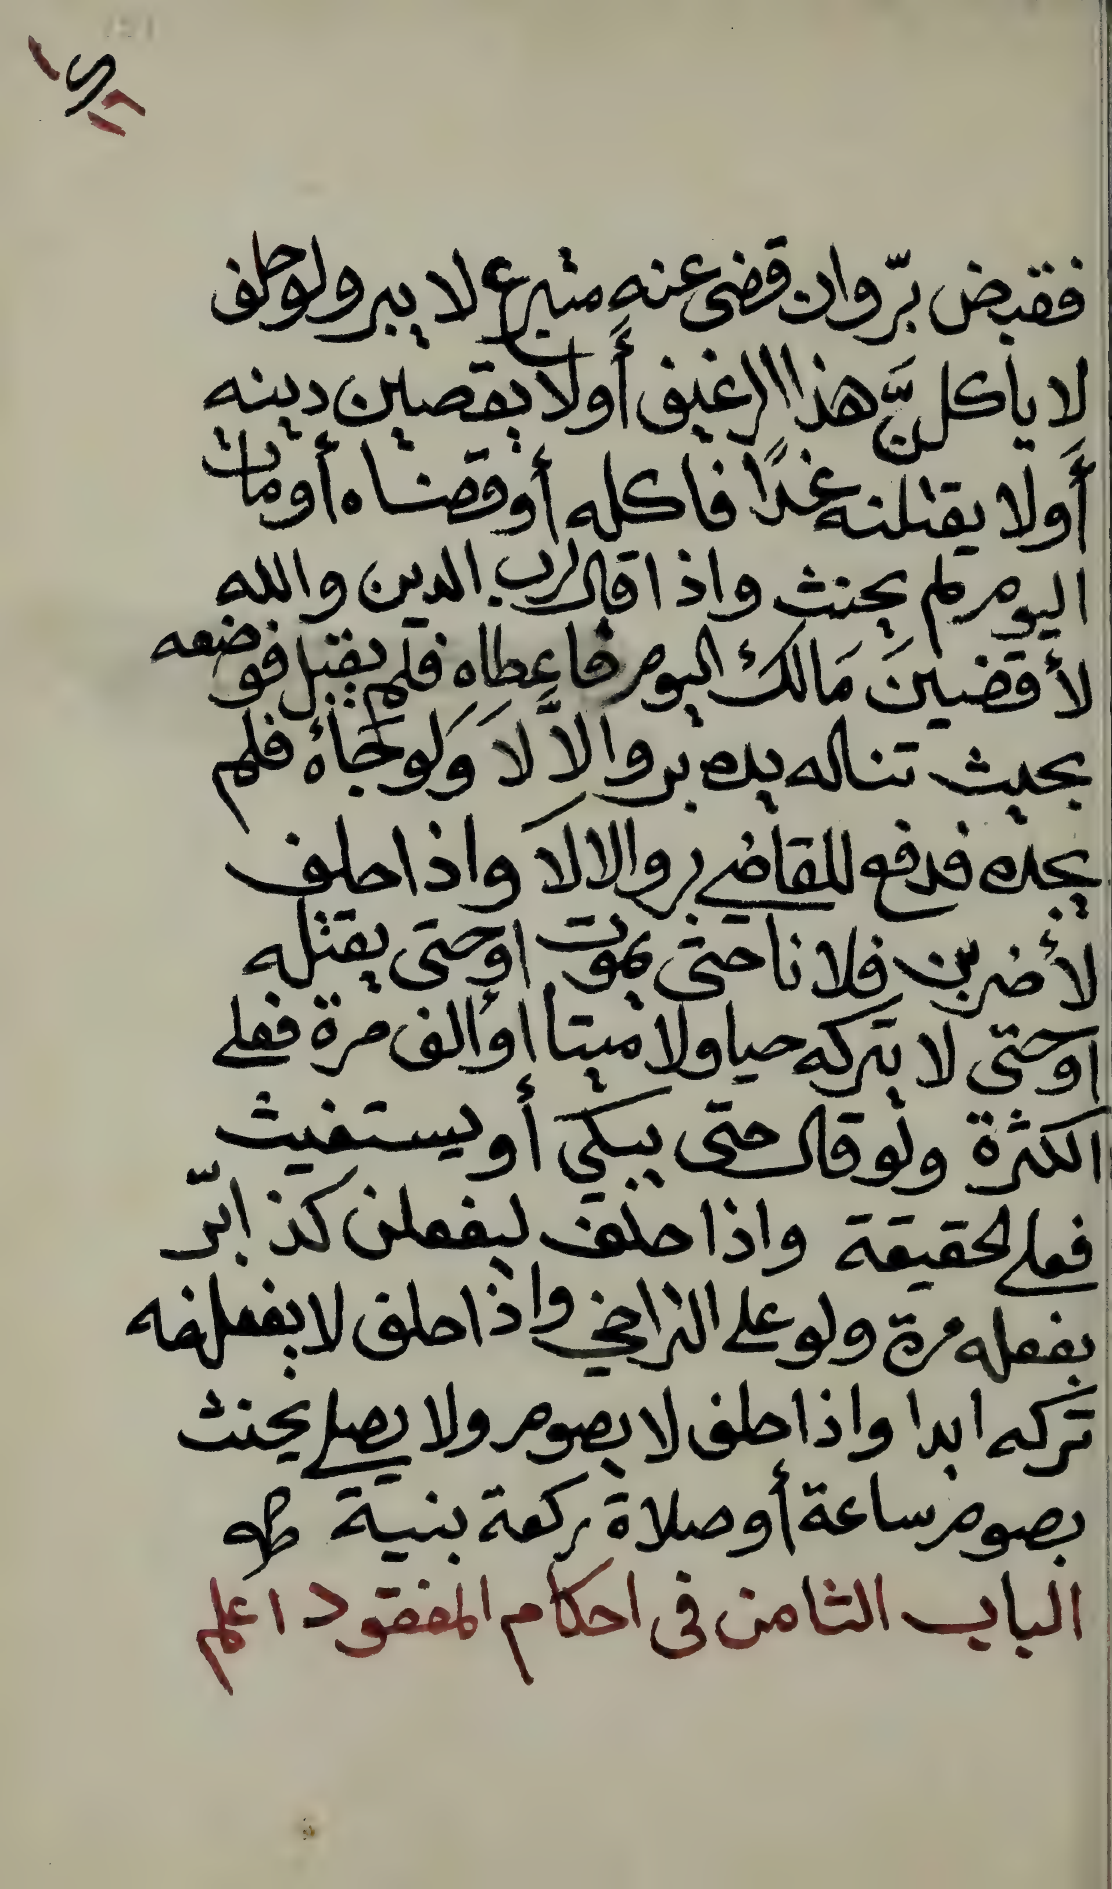 فقبض برّ وان قضى عنه متبرع لا يبر ولو حلف
لا ياكلنَّ هذا الرغيف أولا يقضين دينه
أولا يقتلنه غدًا فاكله أو قضاه أو مات
اليوم لم يحنث واذا قال لرب الدين والله
لأقضينَ مَالك اليوم فاعطاه فلم يقبل فوضعه
بحيث تناله يده بر والاَّ لاَ وَلو جَاءَ فلم
يجده فدفع للقاضي بر والا لاَ واذا حلف
لأضربن فلانا حتى يموت اوحتى يقتله
اوحتى لا يتركه حيا ولا ميتا أو ألف مرة فعلى
الكثرة ولو قال حتى يبكي أو يستغيث
فعلى الحقيقة واذا حلف ليفعلن كذا برّ
بفعله مرة ولو على التراخي واذا حلف لا يفعله
تركه ابدا واذا حلف لا يصوم ولا يصلي يحنث
بصوم ساعة أو صلاة ركعة بنية
الباب الثامن في احكام المفقود اعلم